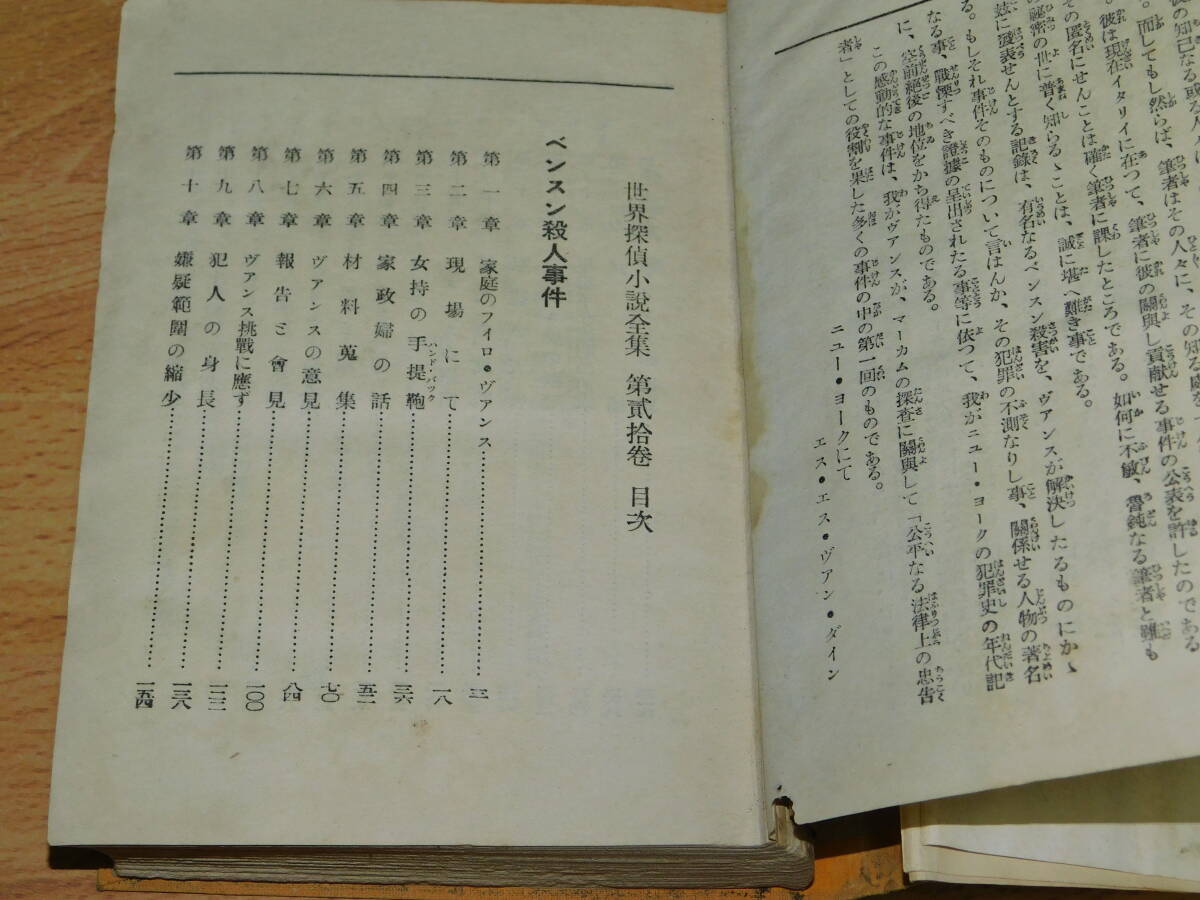 彼の知己なる或る人
。而してもし然らば、筆者はその人々に、その知る處を
。彼は現在イタリイに在つて、筆者に彼の關與し貢献せる事件の公表を許したのである
その匿名にせんことは確く筆者に課したところである。如何に不敏、魯鈍なる筆者と雖も
の祕密の世に普く知らるゝことは、誠に堪へ難き事である。
玆に發表せんとする記錄は、有名なるベンスン殺害を、ヴアンスが解決したるものにかゝ
る。もしそれ事件そのものについて言はんか、その犯罪の不測なりし事、關係せる人物の著名
なる事、戰慄すべき證據の呈出されたる事等に依つて、我がニュー・ヨークの犯罪史の年代記
に、空前絕後の地位をかち得たものである。
この感動的な事件は、我がヴァンスが、マーカムの探査に關與して「公平なる法律上の忠告
者」としての役割を果した多くの事件の中の第一回のものである。
ニュー・ヨークにて
エス・エス・ヴアン・ダイン
世界探偵小說全集 第貳拾卷 目次
ベンスン殺人事件
第一章 家庭のフイロ・ヴアンス……三
第二章 現場にて……一八
第三章 女持の手提鞄……三六
ハンド・バック
第四章 家政婦の話……五二
第五章 材料蒐集……七〇
第六章 ヴアンスの意見……八四
第七章 報告と會見……一〇〇
第八章 ヴアンス挑戰に應ず……一二三
第九章 犯人の身長……一三八
第十章 嫌疑範圍の縮少……一五四